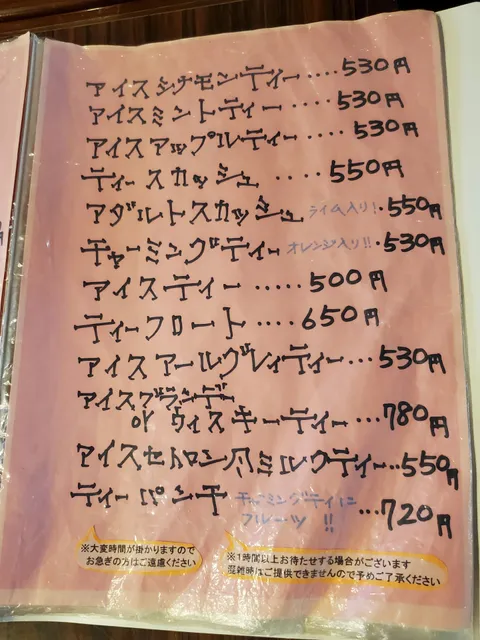 アイスシナモンティー‥‥530円
アイスミントティー‥‥530円
アイスアップルティー‥‥530円
ティースカッシュ‥‥‥550円
アダルトスカッシュ ライム入り!・550円
チャーミングティー オレンジ入り!!・530円
アイスティー‥‥‥500円
ティーフロート‥‥‥650円
アイスアールグレイティー‥‥530円
アイスブランデー
or ウィスキーティー‥‥780円
アイスセイロン風ミルクティー‥・550円
ティーパンチ チャーミングティに
フルーツ!!‥‥720円
※大変時間が掛かりますので
お急ぎの方はご遠慮ください
※1時間以上お待たせする場合がございます
混雑時はご提供できませんので予めご了承ください